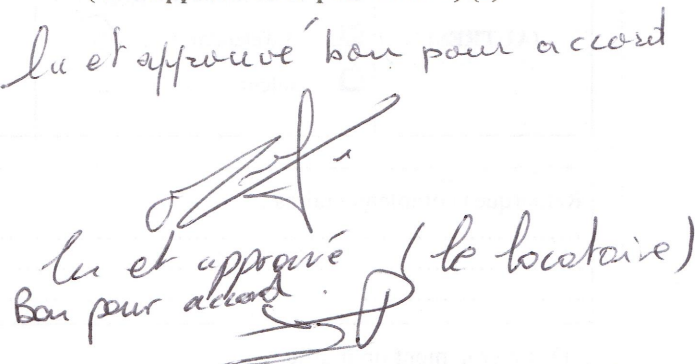 lu et approuvé bon pour accord
lu et approuvé (le locataire)
Bon pour accord.